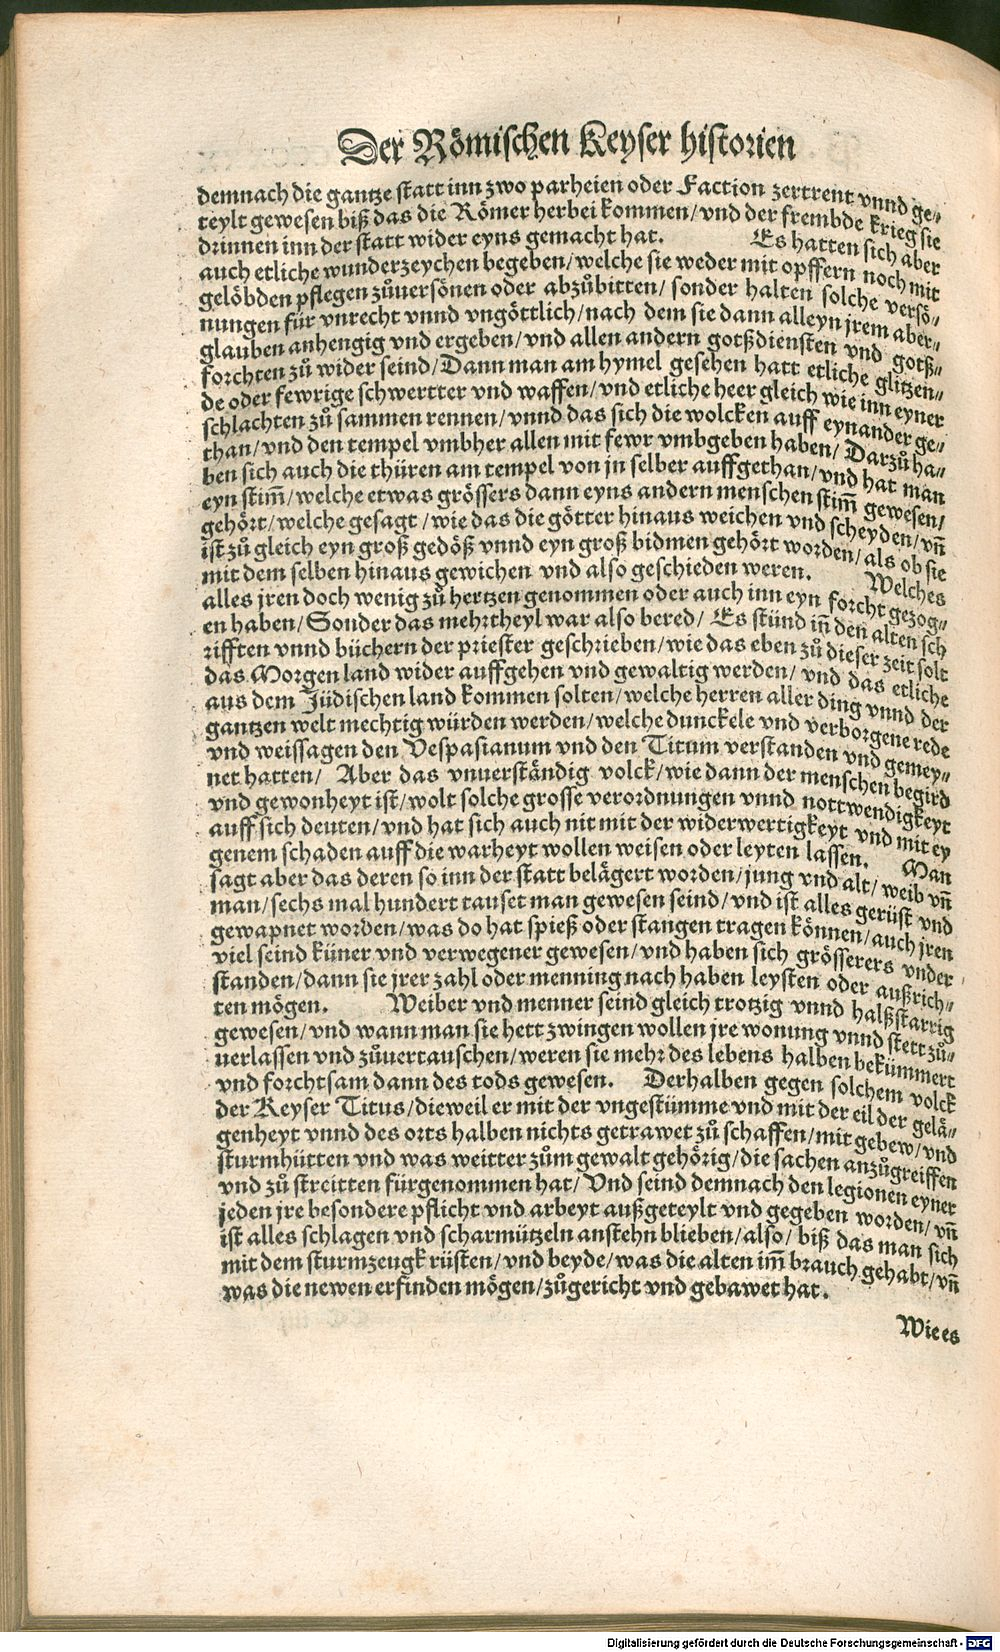 Der Römischen Keyser historien
demnach die gantze statt inn zwo parheien oder Faction zertrent vnnd ge⸗
teylt gewesen biß das die Römer herbei kommen/vnd der frembde krieg sie
drinnen inn der statt wider eyns gemacht hat. Es hatten sich aber
auch etliche wunderzeychen begeben/welche sie weder mit opffern noch mit
gelöbden pflegen zůuersönen oder abzůbitten/ sonder halten solche versö⸗
nungen für vnrecht vnnd vngöttlich/nach dem sie dann alleyn jrem aber⸗
glauben anhengig vnd ergeben/vnd allen andern gotßdiensten vnd gotß⸗
forchten zů wider seind/Dann man am hymel gesehen hatt etliche glitzen⸗
de oder fewrige schwertter vnd waffen/vnd etliche heer gleich wie inn eyner
schlachten zů sammen rennen/vnnd das sich die wolcken auff eynander ge⸗
than/vnd den tempel vmbher allen mit fewr vmbgeben haben/ Darzů ha⸗
ben sich auch die thüren am tempel von jn selber auffgethan/vnd hat man
eyn stim̃/welche etwas grössers dann eyns andern menschen stim̃ gewesen/
gehört/welche gesagt/wie das die götter hinaus weichen vnd scheyden/vñ
ist zů gleich eyn groß gedöß vnnd eyn groß bidmen gehört worden/als ob sie
mit dem selben hinaus gewichen vnd also geschieden weren. Welches
alles jren doch wenig zů hertzen genommen oder auch inn eyn forcht gezog⸗
en haben/Sonder das mehrtheyl war also bered/ Es stünd iñ den alten sch
rifften vnnd büchern der priester geschrieben/wie das eben zů dieser zeit solt
das Morgen land wider auffgehen vnd gewaltig werden/ vnd das etliche
aus dem Jüdischen land kommen solten/welche herren aller ding vnnd der
gantzen welt mechtig würden werden/welche dunckele vnd verborgene rede
vnd weissagen den Vespasianum vnd den Titum verstanden vnd gemey⸗
net hatten/ Aber das vnuerständig volck/wie dann der menschen begird
vnd gewonheyt ist/wolt solche grosse verordnungen vnnd nottwendigkeyt
auff sich deuten/vnd hat sich auch nit mit der widerwertigkeyt vnd mit ey
genem schaden auff die warheyt wollen weisen oder leyten lassen. Man
sagt aber das deren so inn der statt belägert worden/jung vnd alt/weib vñ
man/sechs mal hundert tauset man gewesen seind/vnd ist alles gerüst vnd
gewapnet worden/was do hat spieß oder stangen tragen können/auch jren
viel seind küner vnd verwegener gewesen/vnd haben sich grösserers vnder
standen/dann sie jrer zahl oder menning nach haben leysten oder außrich⸗
ten mögen. Weiber vnd menner seind gleich trotzig vnnd halßstarrig
gewesen/vnd wann man sie hett zwingen wollen jre wonung vnnd stett zů⸗
uerlassen vnd zůuertauschen/weren sie mehr des lebens halben bekümmert
vnd forchtsam dann des tods gewesen. Derhalben gegen solchem volck
der Keyser Titus/dieweil er mit der vngestümme vnd mit der eil der gelä⸗
genheyt vnnd des orts halben nichts getrawet zů schaffen/mit gebew/vnd
sturmhütten vnd was weitter zům gewalt gehörig/die sachen anzůgreiffen
vnd zů streitten fürgenommen hat/ Vnd seind demnach den legionen eyner
jeden jre besondere pflicht vnd arbeyt außgeteylt vnd gegeben worden/vñ
ist alles schlagen vnd scharmützeln anstehn blieben/also/ biß das man sich
mit dem sturmzeugk rüsten/vnd beyde/was die alten im̃ brauch gehabt/vñ
was die newen erfinden mögen/zůgericht vnd gebawet hat.
Wie es
Digitalisierung gefördert durch die Deutsche Forschungsgemeinschaft - DFG